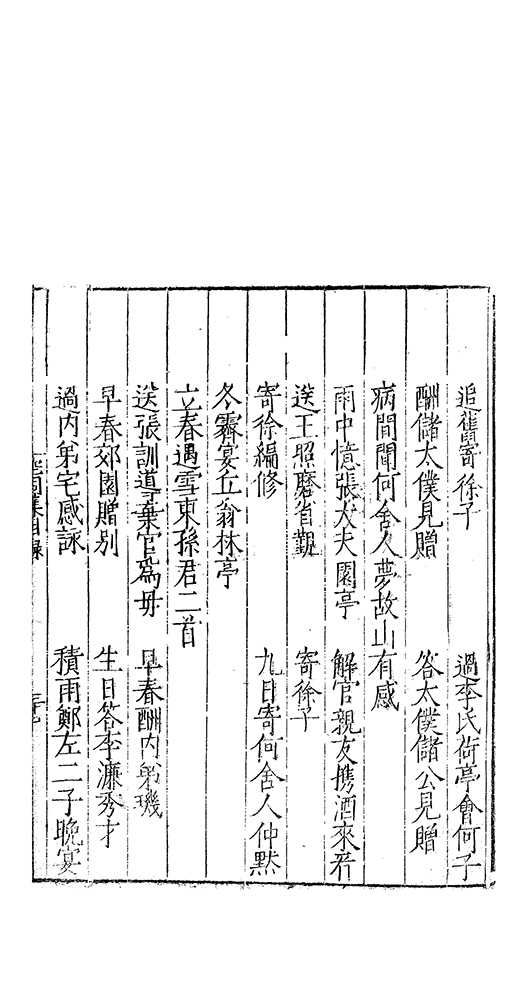 追舊寄徐子 過李氏荷亭會何子
酬儲太僕見贈 答太僕儲公見贈
病間聞何舍人夢故山有感
雨中憶張大夫園亭 解官親友携酒來看
送王照磨省觀 寄徐子
寄徐編修 九日寄何舍人仲默
冬霽宴丘翁林亭
立春遇雪柬孫君二首
送張訓導棄官為母 早春酬內弟璣
早春郊園贈別 生日答李濂秀才
過內弟宅感詠 積雨鄭左二子晚宴
空同集目錄